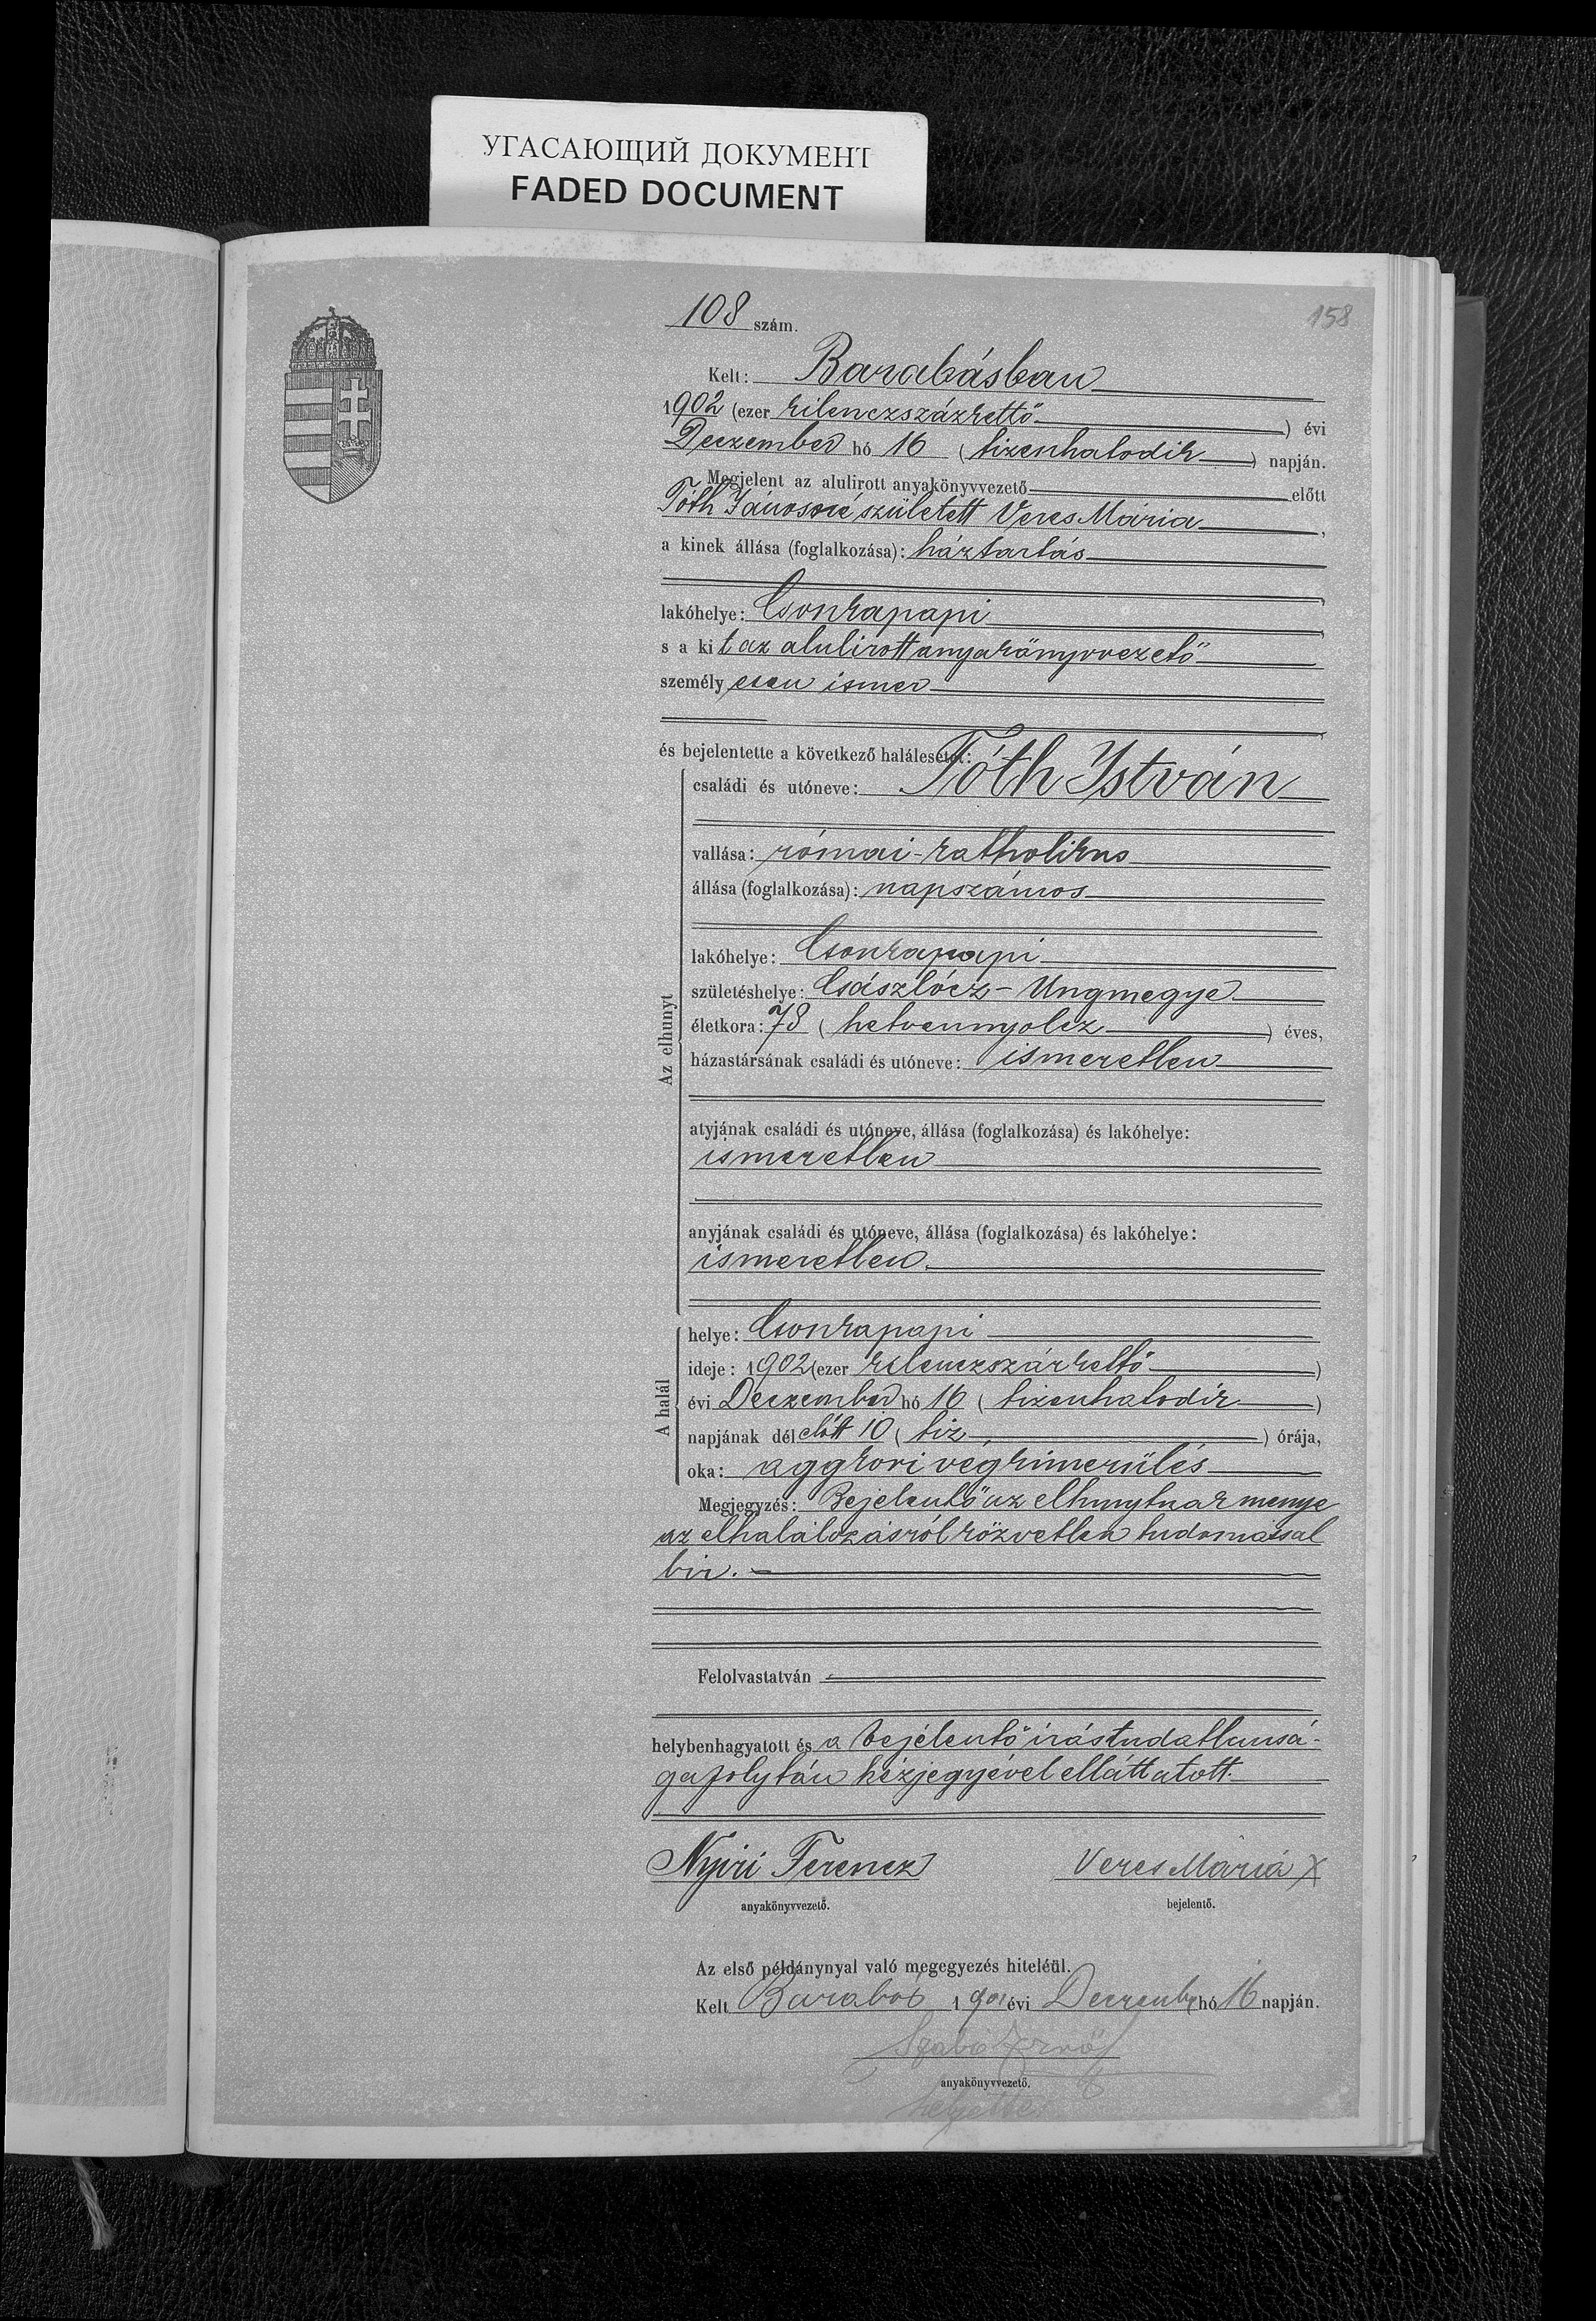 УГАСАЮЩИЙ ДОКУМЕНТ
FADED DOCUMENT
158
108 szám.
Kelt: Barabásban
1902 (ezer kilenczszázkettő) évi
Deczember hó 16 (tizenhatodik) napján.
Megjelent az alulirott anyakönyvvezető előtt
Tóth Jánosné született Veres Mária,
a kinek állása (foglalkozása): háztartás
lakóhelye: Csonkapapi,
s a kit az alulirott anyakönyvvezető
személyesen ismer
és bejelentette a következő halálesetet:
Az elhunyt
családi és utóneve: Tóth István
vallása: római-katholikus
állása (foglalkozása): napszámos
lakóhelye: Csonkapapi
születéshelye: Császlócz - Ungmegye
életkora: 78 (hetvennyolcz) éves,
házastársának családi és utóneve: ismeretlen
atyjának családi és utóneve, állása (foglalkozása) és lakóhelye:
ismeretlen
anyjának családi és utóneve, állása (foglalkozása) és lakóhelye:
ismeretlen
A halál
helye: Csonkapapi
ideje: 1902 (ezer kilenczszázkettő)
évi Deczember hó 16 (tizenhatodik)
napjának délelőtt 10 (tiz) órája,
oka: aggkori végkimerülés
Megjegyzés: Bejelentő az elhunytnak menye
az elhalálozásról közvetlen tudomással
bir. -
Felolvastatván
helybenhagyatott és a bejelentő irástudatlansá-
ga folytán kézjegyével elláttatott.
Nyiri Ferencz Veres Mária X
anyakönyvvezető. bejelentő.
Az első példánynyal való megegyezés hiteléül.
Kelt Barabás 190 évi Deczember hó 16 napján.
Szabó Ernő
anyakönyvvezető.
helyettes